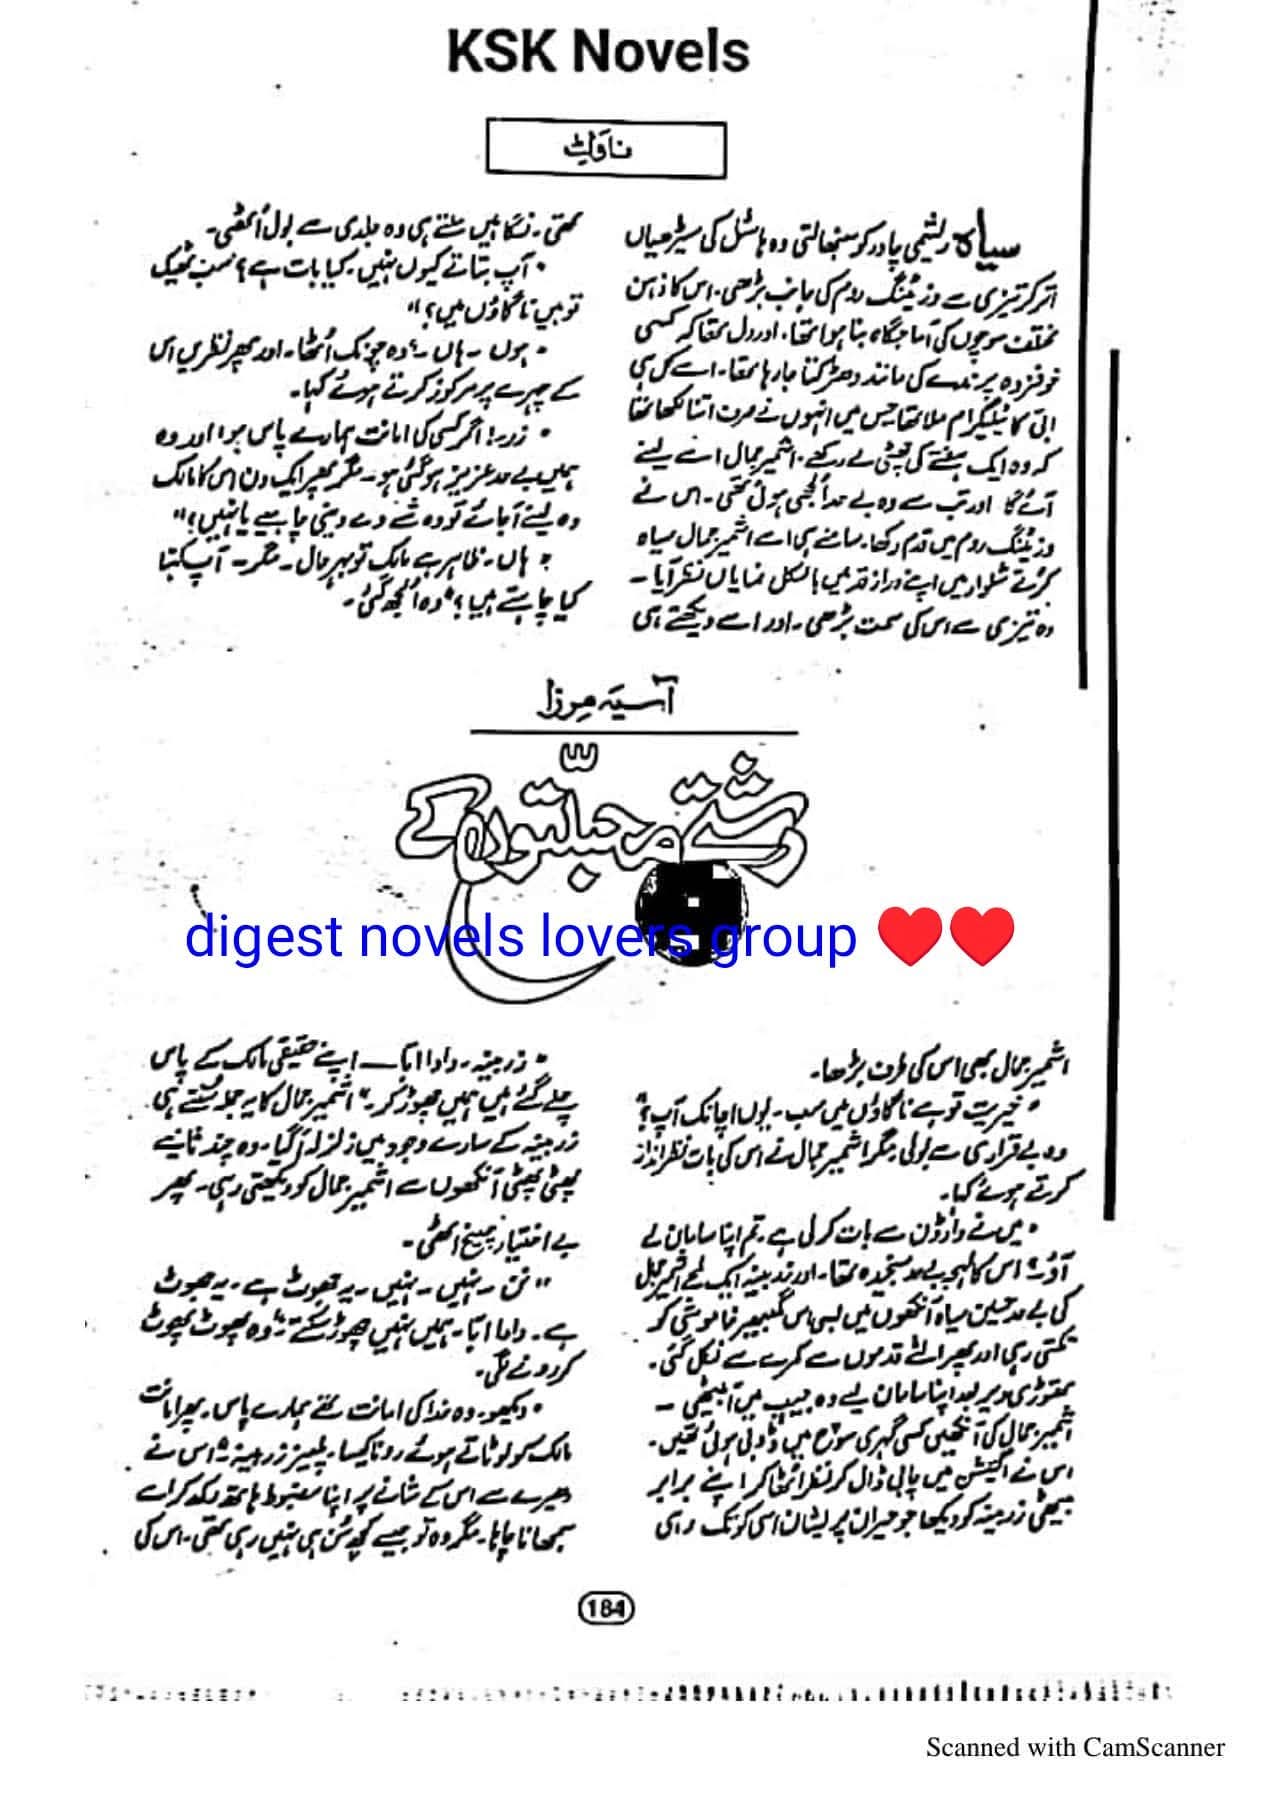 KSK Novels
ناولٹ
سیاہ ریشمی چادر کو سنبھالتی وہ ہاسٹل کی سیڑھیاں
اتر کر تیزی سے وزیٹنگ روم کی جانب بڑھی۔ اس کا ذہن
مختلف سوچوں کی آماجگاہ بنا ہوا تھا۔ اور دل تھا کہ کسی
خوفزدہ پرندے کی مانند دھڑکتا جا رہا تھا۔ اسے کل ہی
ابّی کا ٹیلیگرام ملا تھا جس میں انہوں نے صرف اتنا لکھا تھا
کہ وہ ایک ہفتے کی چھٹی لے رکھے۔ اشمیر جمال اسے لینے
آئے گا اور تب سے وہ بے حد الجھی ہوئی تھی۔ اس نے
وزیٹنگ روم میں قدم رکھا۔ سامنے ہی اسے اشمیر جمال سیاہ
کرتے شلوار میں اپنے دراز قد میں بالکل نمایاں نظر آیا۔
وہ تیزی سے اس کی سمت بڑھی۔ اور اسے دیکھتے ہی
تھی۔ نگاہیں ملتے ہی وہ جلدی سے بول اُٹھی۔
"آپ بتاتے کیوں نہیں۔ کیا بات ہے؟ سب ٹھیک
تو ہیں نا گاؤں میں؟"
"ہوں۔ ہاں۔" وہ چونک اُٹھا۔ اور پھر نظریں اس
کے چہرے پر مرکوز کرتے ہوئے کہا۔
"زر! اگر کسی کی امانت ہمارے پاس ہو اور وہ
ہمیں بے حد عزیز ہو گئی ہو۔ مگر پھر ایک دن اس کا مالک
وہ لینے آ جائے تو وہ شے دے دینی چاہیے یا نہیں؟"
"ہاں۔ ظاہر ہے مالک تو بہرحال۔ مگر۔ آپ کہنا
کیا چاہتے ہیں؟" وہ اُلجھ گئی۔
آسیہ مرزا
رشتے محبتوں کے
digest novels lovers group ❤️❤️
اشمیر جمال بھی اس کی طرف بڑھا۔
"خیریت تو ہے نا گاؤں میں سب۔ یوں اچانک آپ؟"
وہ بے قراری سے بولی۔ مگر اشمیر جمال نے اس کی بات نظر انداز
کرتے ہوئے کہا۔
"میں نے وارڈن سے بات کر لی ہے۔ تم اپنا سامان لے
آؤ۔" اس کا لہجہ بے حد سنجیدہ تھا۔ اور زرمینہ ایک لمحے اشمیر جمال
کی بے حد حسین سیاہ آنکھوں میں بسی اس گمبھیر خاموشی کو
تکتی رہی اور پھر الٹے قدموں سے کمرے سے نکل گئی۔
تھوڑی دیر بعد اپنا سامان لیے وہ جیپ میں آ بیٹھی۔
اشمیر جمال کی آنکھیں کسی گہری سوچ میں ڈوبی ہوئی تھیں۔
اس نے اگنیشن میں چابی ڈال کر نظر اٹھا کر اپنے برابر
بیٹھی زرمینہ کو دیکھا جو حیران پریشان اسی کو تک رہی
"زرمینہ۔ دادا ابّا — اپنے حقیقی مالک کے پاس
چلے گئے ہیں ہمیں چھوڑ کر۔" اشمیر جمال کا یہ جملہ سنتے ہی
زرمینہ کے سارے وجود میں زلزلہ آ گیا۔ وہ چند ثانیے
پھٹی پھٹی آنکھوں سے اشمیر جمال کو دیکھتی رہی۔ پھر
بے اختیار چیخ اٹھی۔
"نن۔ نہیں۔ نہیں۔ یہ جھوٹ ہے۔ یہ جھوٹ
ہے۔ دادا ابّا۔ ہمیں نہیں چھوڑ سکتے۔" وہ پھوٹ پھوٹ
کر رونے لگی۔
"دیکھو۔ وہ خدا کی امانت تھے ہمارے پاس۔ پھر امانت
مالک کو لوٹاتے ہوئے رونا کیسا۔ پلیز زرمینہ" اس نے
دھیرے سے اس کے شانے پر اپنا مضبوط ہاتھ رکھ کر اسے
سمجھانا چاہا۔ مگر وہ تو جیسے کچھ سُن ہی نہیں رہی تھی۔ اس کی
184
Scanned with CamScanner